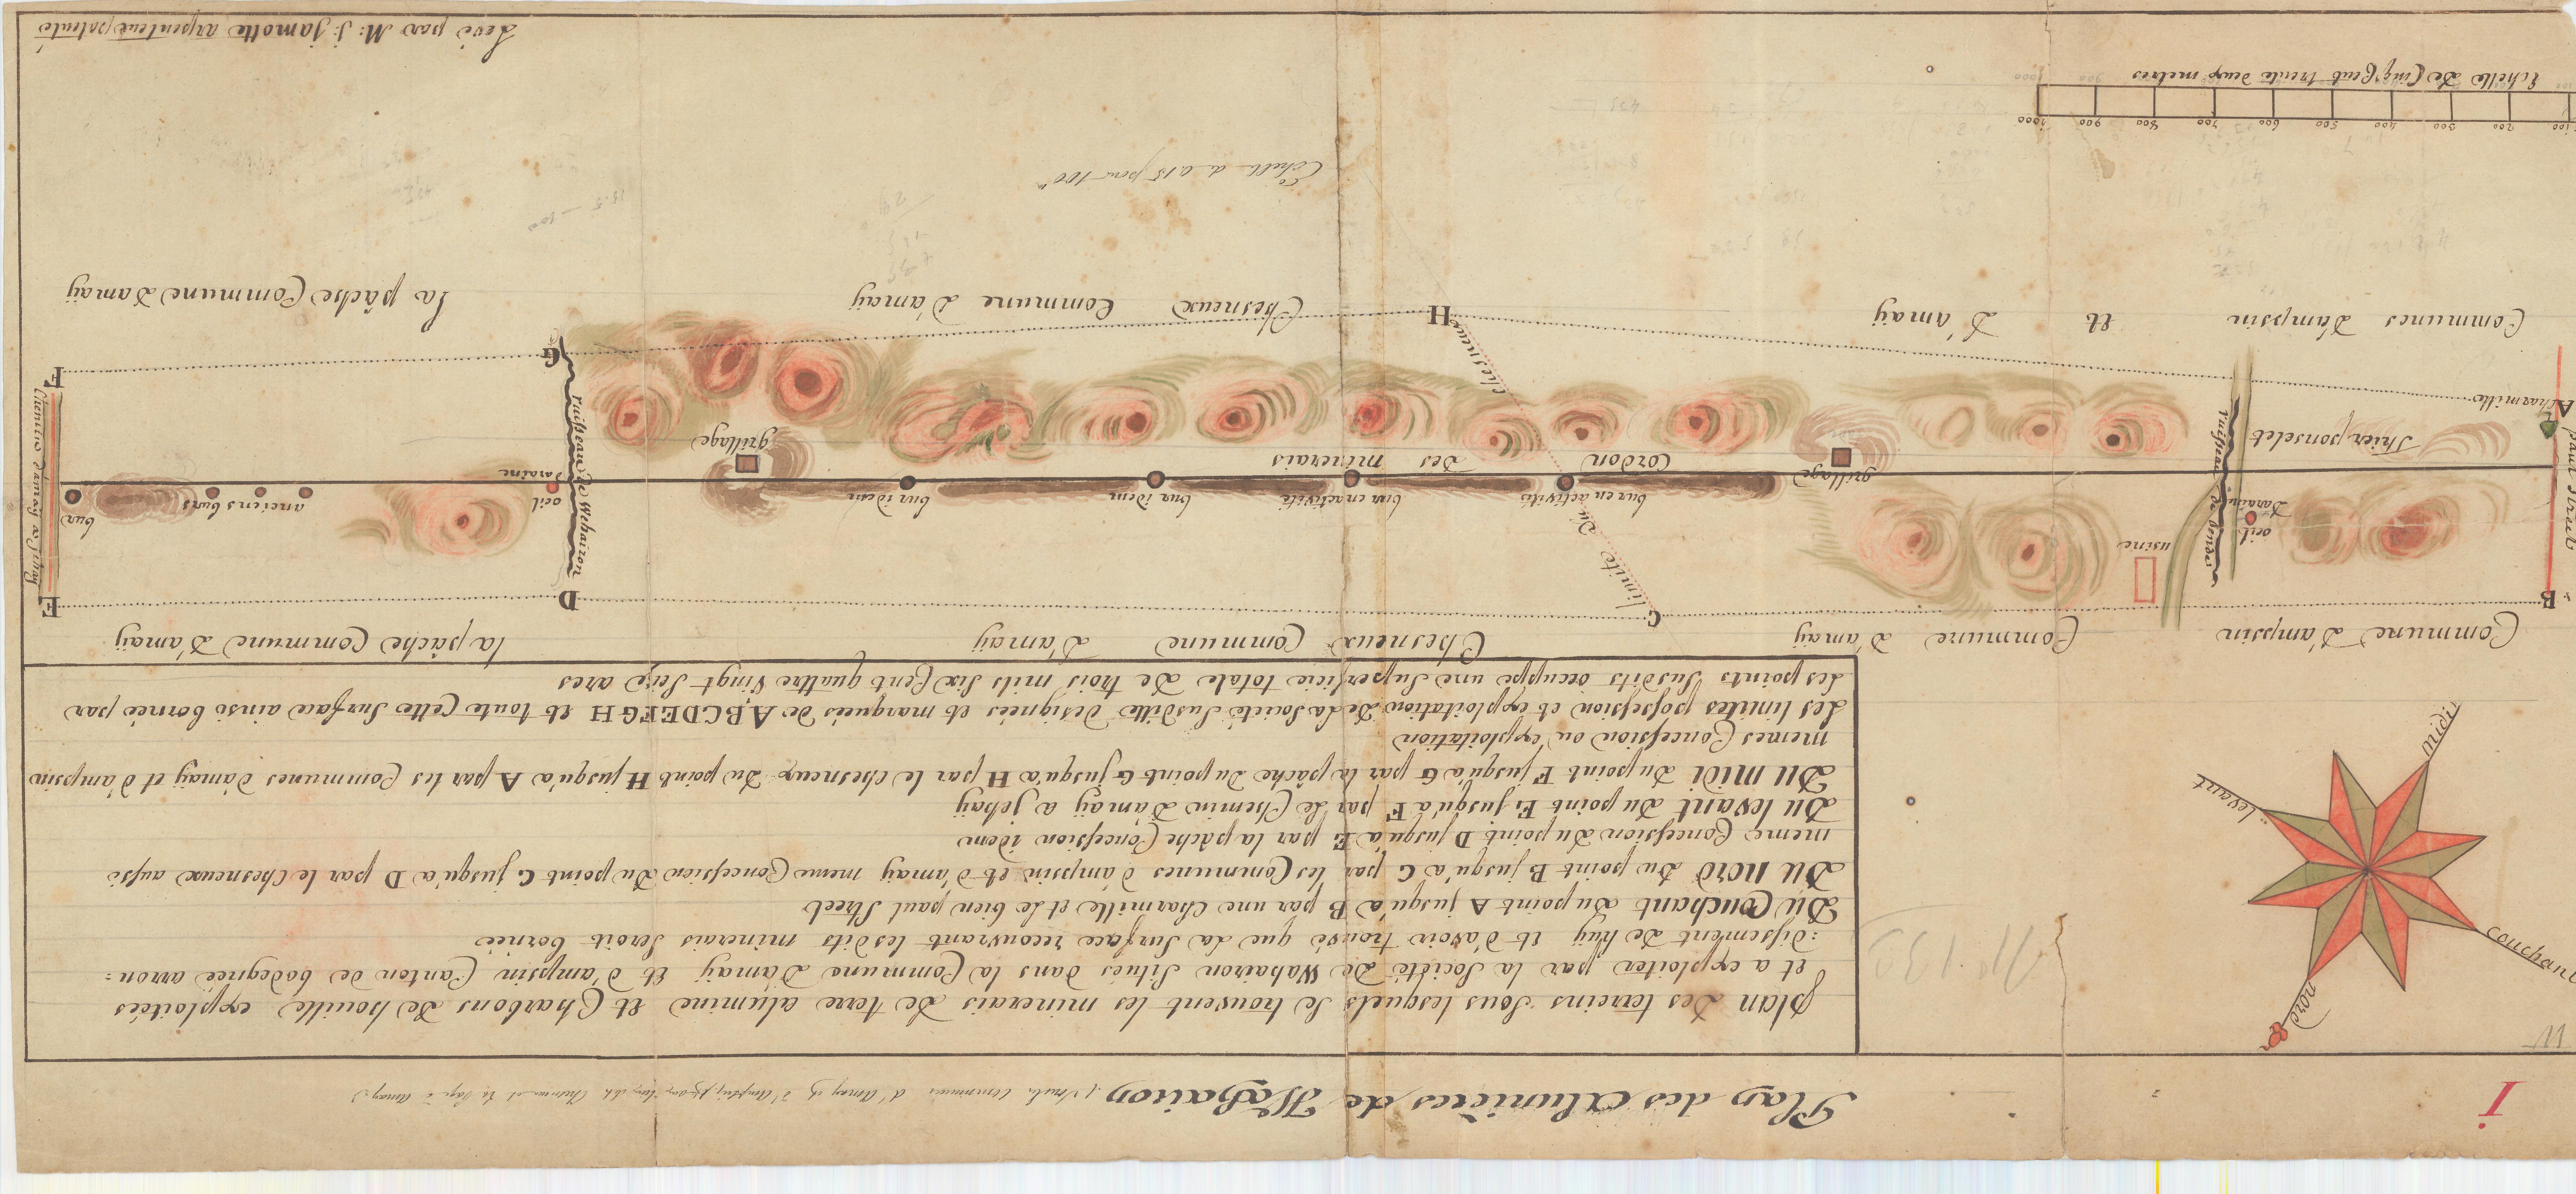 I
Plan des Alunières de Wahairon
plan Des terreins Sous lesquels Se trouvent les minerais De terre alumine et Charbons De houille, exploitées
et a exploiter par la Société De Wahairon Situés dans la Commune D'amay et d'ampsin Canton de bodegnée arron :
: dissement De huy et D'avoir trouvé que La Surface recouvrant lesdits minerais Seroit bornée
Du Couchant Du point A jusqu'a B par une Charmille et Le bien paul Streel
Du nord Du point B jusqu'a C par les Communes d'ampsin et d'amay meme Concession Du point C jusqu'a D par le Chesneux aussi
meme Concession Du point D jusqu'a E par la pâche Concession idem
Du levant Du point E jusqu'a F par Le Chemin D'amay a jehay
Du midi Du point F jusqu'a G par la pâche Du point G jusqu'a H par le Chesneux Du point H jusqu'a A par les Communes D'amay et d'ampsin
memes Concession ou exploitation
Les limites possession et exploitation De La Société Susditte Designées et marquées De ABCDEFGH et toute Cette Surface ainsi bornée par
Les points Susdits occuppe une Superficie totale De trois mils Six Cent quattre Vingt Seize ares
N° 130
nord
Couchant
levant
midi
Commune D'ampsin
Commune D'amay
Chesneux Commune D'amay
la pâche Commune D'amay
B
C
D
E
limite Du Chesneux
usine
oeil Daraine
ruisseau De bende
paul Streel
bur en activité
bur en activité
bur idem
bur idem
oeil Daraine
anciens burs
bur
ruisseau De Wehairon
Chemin D'amay a Jehay
grillage
Cordon Des minerais
grillage
Thier ponselet
Charmille
A
H
G
F
Communes D'ampsin et D'amay
Chesneux Commune D'amay
la pâche Commune D'amay
Echelle a 0.15 pour 100
100 200 300 400 500 600 700 800 900 1000
Echelle De Cinq Cent trente Deux metres
Levé par M: j: jamotte arpenteur patenté